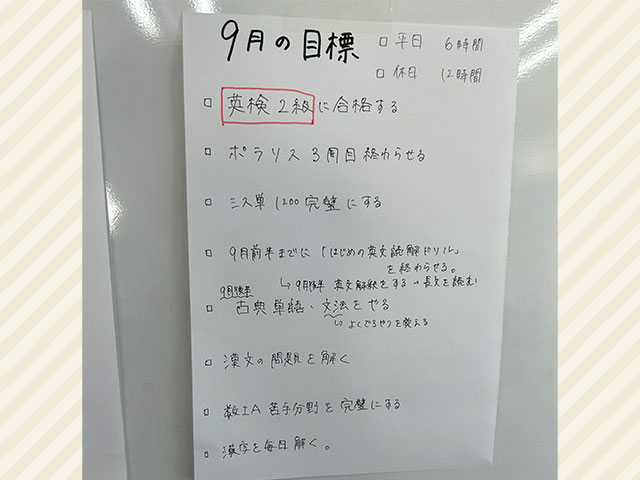 9月の目標
□ 平日 6時間
□ 休日 12時間
□ 英検2級に合格する
□ ポラリス 3周目終わらせる
□ ミス単1200完璧にする
□ 9月前半までに「はじめの英文読解ドリル」
を終わらせる。
↳ 9月後半 英文解釈をする→長文を読む
9月後半
□ 古典単語・文法をやる
↳ よくでるやつを覚える
□ 漢文の問題を解く
□ 数IA 苦手分野を完璧にする
□ 漢字を毎日解く。